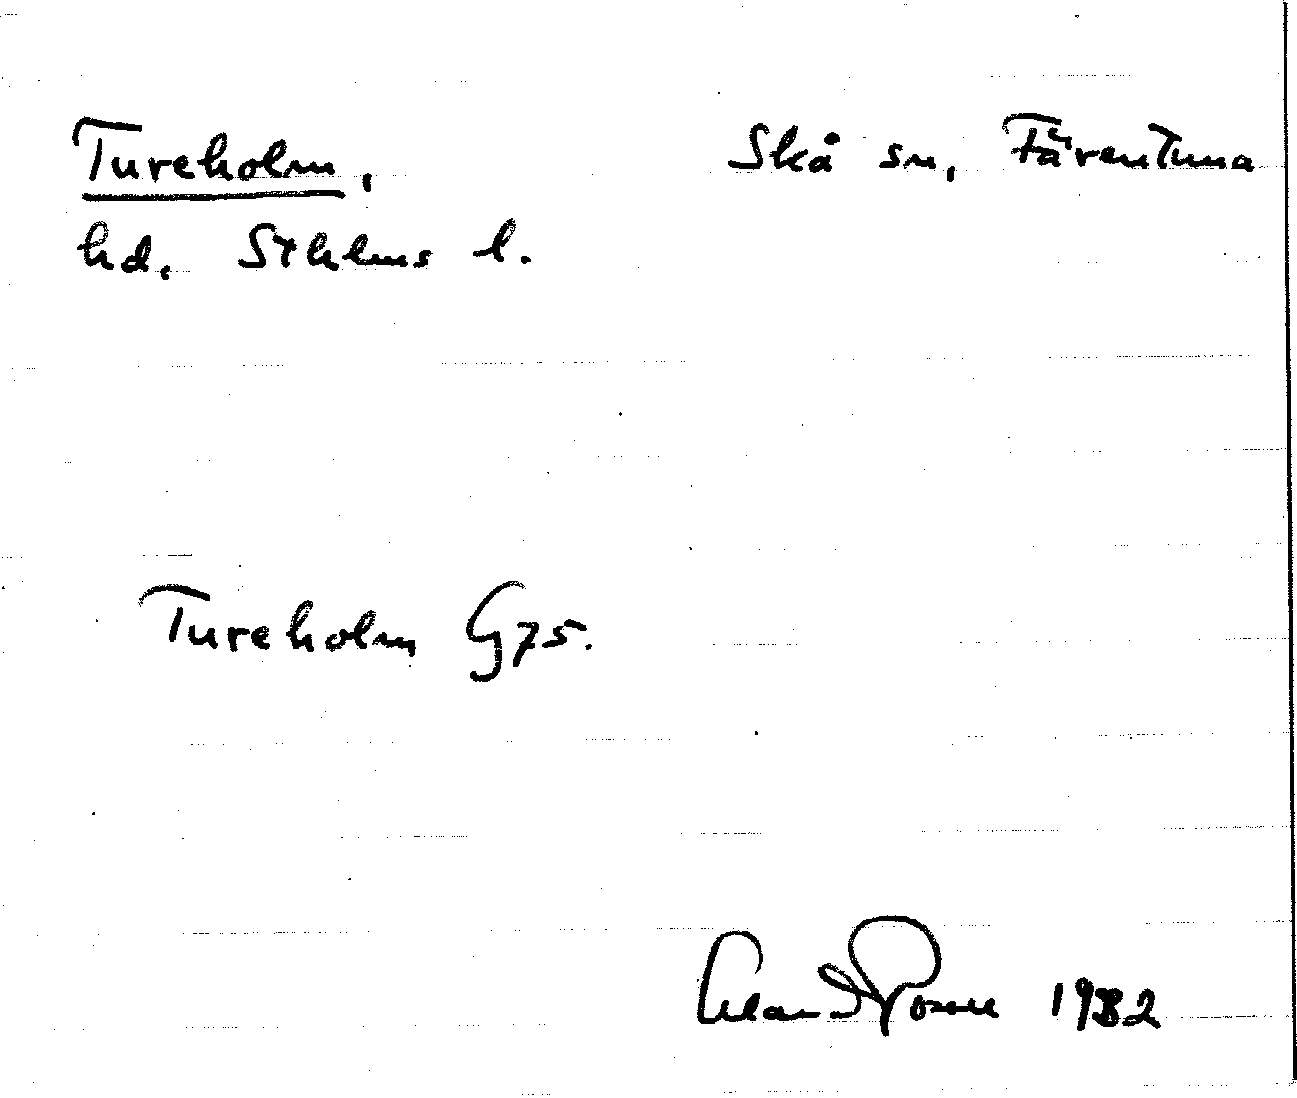 Tureholm, Skå sn, Färentuna
hd, Sthlms l.
Tureholm G75.
1982